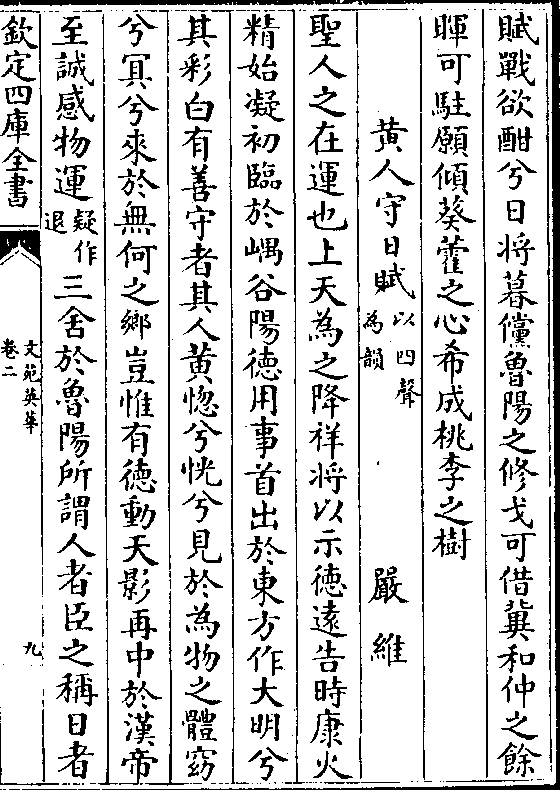 賦戰欲酣兮日将暮儻魯陽之修戈可借冀和仲之餘
暉可駐願傾葵藿之心希成桃李之樹
黄人守日賦以四聲為韻 嚴維
聖人之在運也上天為之降祥将以示徳遠告時康火
精始凝初臨於嵎谷陽徳用事首出於東方作大明兮
其彩白有善守者其人黄惚兮恍兮見於為物之體窈
兮冥兮來於無何之鄉豈惟有徳動天影再中於漢帝
至誠感物運疑作退三舍於魯陽所謂人者臣之稱日者
欽定四庫全書
文苑英華
卷二
九